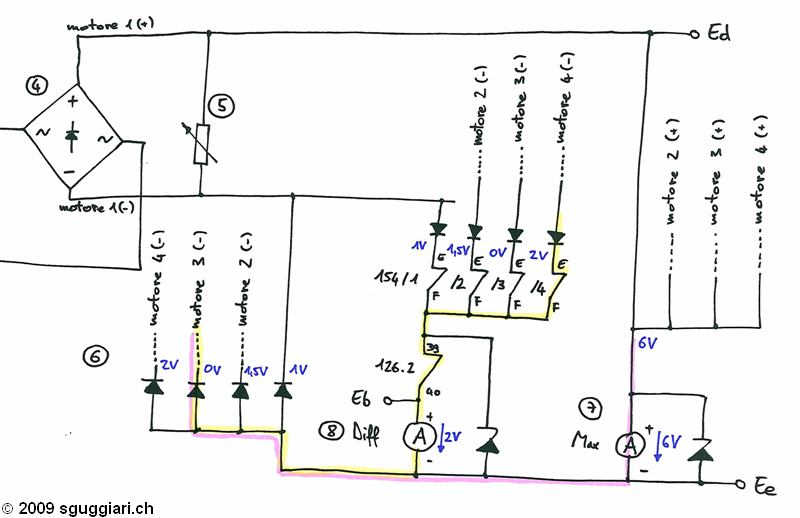 motore 1 (+)
Ed
4
+
~
~
-
5
motore 1 (-)
motore 2 (-)
motore 3 (-)
motore 4 (-)
motore 2 (+)
motore 3 (+)
motore 4 (+)
1V
1,5V
0V
2V
E
E
E
E
154/1
/2
/3
/4
F
F
F
F
motore 4 (-)
motore 3 (-)
motore 2 (-)
6
2V
0V
1,5V
1V
39
126.2
40
Eb
+
8 Diff
A
2V
-
6V
7
Max
+
A
6V
-
Ee
© 2009 sguggiari.ch